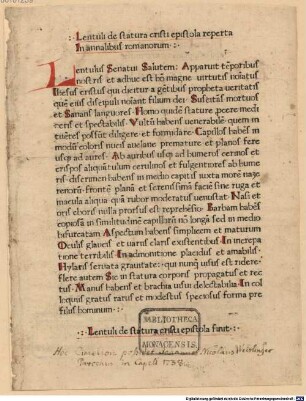 ·:· Lentuli de statura cristi epistola reperta
In annalibus romanorum ·:·
Lentulus Senatui Salutem: Apparuit tēporibus
nostris et adhuc est hō magne virtutis noīatus
Ihesus cristus qui dicitur a gētibus propheta veritatis
quē eius discipuli noīant filium dei: Suscitās mortuos
et Sanans languores: Homo quidē statura
et spectabilis. Vultū habens venerabilē: quem in
tueētes possūt diligere et formidare: Capillos habēs
coloris nucis auelane premature et planos fere
usqz ad aures: Ab auribus usqz ad humeros
aliquātulum ceruleos et fulgentiores
discrimen habens in medio capitis iuxta morē naza
renorū: frontē planā et serenissimā facie sine ruga et
macula aliqua quā rubor moderatus uenustat: Nasi et
oris nulla prorsus est reprehēsio: Barbam habēs
copiosā capillorū nō longā sed in medio
bifurcatam: Aspectum habens simplicem et maturum
Oculis glaucis et uariis claris existentibus: In increpa
tione terribilis: In admonitione placidus et amabilis:
Hylaris seruata grauitate: qui nunqz uisus est ridere:
flere autem Sic in statura corporis propagatus et rec
tus: Manus habens et brachia uisu delectabilia: In col
loquiis gratis rarus et modestus speciosus forma pre
filiis hominum ·:·
·:· Lentuli de statura cristi epistola finit ·:·
BIBLIOTHECA
REGIA
MONACENSIS.